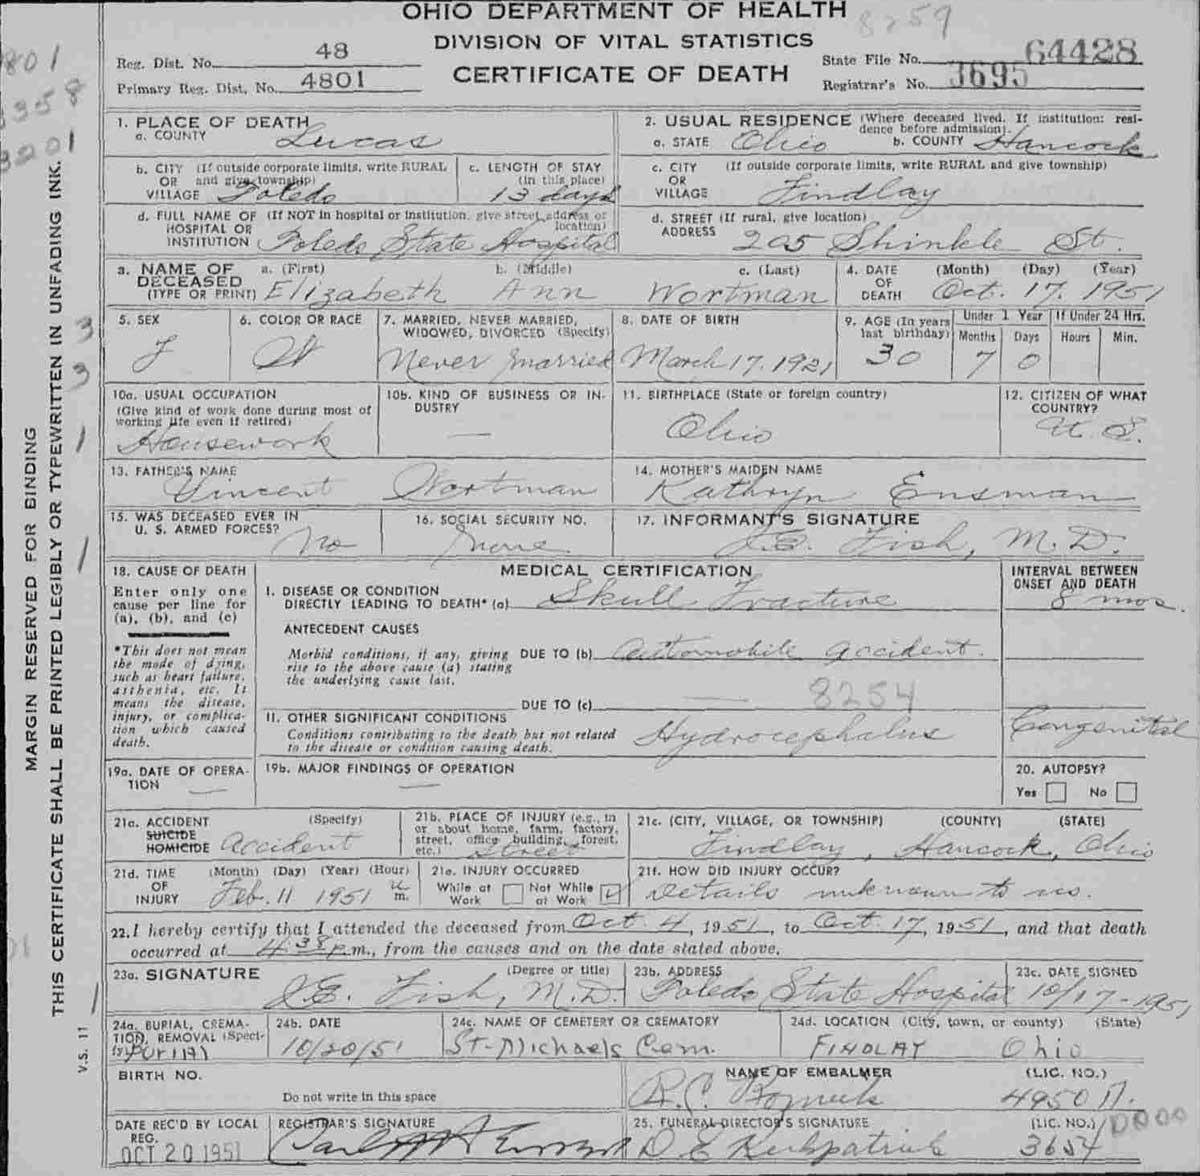 OHIO DEPARTMENT OF HEALTH
8259
DIVISION OF VITAL STATISTICS
CERTIFICATE OF DEATH
Reg. Dist. No. 48
Primary Reg. Dist. No. 4801
State File No. 64428
Registrar's No. 3695
801
3358
3201
1. PLACE OF DEATH
a. COUNTY Lucas
2. USUAL RESIDENCE (Where deceased lived. If institution: resi-
dence before admission).
a. STATE Ohio b. COUNTY Hancock
b. CITY (If outside corporate limits, write RURAL
OR and give township)
VILLAGE Toledo
c. LENGTH OF STAY
(in this place)
13 days
c. CITY (If outside corporate limits, write RURAL and give township)
OR
VILLAGE Findlay
d. FULL NAME OF (If NOT in hospital or institution, give street address or
HOSPITAL OR location)
INSTITUTION Toledo State Hospital
d. STREET (If rural, give location)
ADDRESS 205 Shinkle St.
3. NAME OF a. (First) b. (Middle) c. (Last)
DECEASED
(TYPE OR PRINT) Elizabeth Ann Wortman
4. DATE (Month) (Day) (Year)
OF
DEATH Oct. 17. 1951
5. SEX
F
6. COLOR OR RACE
W
7. MARRIED, NEVER MARRIED,
WIDOWED, DIVORCED (Specify)
Never Married
8. DATE OF BIRTH
March 17. 1921
9. AGE (In years
last birthday)
30
Under 1 Year
Months Days
7 0
If Under 24 Hrs.
Hours Min.
10a. USUAL OCCUPATION
(Give kind of work done during most of
working life even if retired)
Housework
10b. KIND OF BUSINESS OR IN-
DUSTRY
—
11. BIRTHPLACE (State or foreign country)
Ohio
12. CITIZEN OF WHAT
COUNTRY?
U. S.
13. FATHER'S NAME
Vincent Wortman
14. MOTHER'S MAIDEN NAME
Kathryn Ensman
15. WAS DECEASED EVER IN
U. S. ARMED FORCES?
No
16. SOCIAL SECURITY NO.
None
17. INFORMANT'S SIGNATURE
J.E. Fish, M.D.
18. CAUSE OF DEATH
Enter only one
cause per line for
(a), (b), and (c)
*This does not mean
the mode of dying,
such as heart failure,
asthenia, etc. It
means the disease,
injury, or complica-
tion which caused
death.
MEDICAL CERTIFICATION
INTERVAL BETWEEN
ONSET AND DEATH
I. DISEASE OR CONDITION
DIRECTLY LEADING TO DEATH* (a) Skull Fracture
8 mos.
ANTECEDENT CAUSES
Morbid conditions, if any, giving
rise to the above cause (a) stating
the underlying cause last.
DUE TO (b) Automobile accident.
8254
DUE TO (c) —
II. OTHER SIGNIFICANT CONDITIONS
Conditions contributing to the death but not related
to the disease or condition causing death.
Hydrocephalus
Congenital
19a. DATE OF OPERA-
TION —
19b. MAJOR FINDINGS OF OPERATION
—
20. AUTOPSY?
Yes No
21a. ACCIDENT (Specify)
SUICIDE
HOMICIDE Accident
21b. PLACE OF INJURY (e.g., in
or about home, farm, factory,
street, office building, forest,
etc.) Street
21c. (CITY, VILLAGE, OR TOWNSHIP) (COUNTY) (STATE)
Findlay, Hancock, Ohio
21d. TIME (Month) (Day) (Year) (Hour)
OF
INJURY Feb. 11 1951 u m.
21e. INJURY OCCURRED
While at Work Not While at Work ✓
21f. HOW DID INJURY OCCUR?
Details unknown to us.
22. I hereby certify that I attended the deceased from Oct 4, 1951, to Oct 17, 1951, and that death
occurred at 4:38 p.m., from the causes and on the date stated above.
23a. SIGNATURE (Degree or title)
J.E. Fish, M.D.
23b. ADDRESS
Toledo State Hospital
23c. DATE SIGNED
10/17-1951
24a. BURIAL, CREMA-
TION, REMOVAL (Speci-
fy) BURIAL
24b. DATE
10/20/51
24c. NAME OF CEMETERY OR CREMATORY
St-Michaels Cem.
24d. LOCATION (City, town, or county) (State)
FINDLAY Ohio
BIRTH NO.
Do not write in this space
NAME OF EMBALMER (LIC. NO.)
R.C. 4950 A.
DATE REC'D BY LOCAL
REG.
OCT 20 1951
REGISTRAR'S SIGNATURE
25. FUNERAL DIRECTOR'S SIGNATURE (LIC. NO.)
D E Kirkpatrick 3654
0000
MARGIN RESERVED FOR BINDING
THIS CERTIFICATE SHALL BE PRINTED LEGIBLY OR TYPEWRITTEN IN UNFADING INK.
3
3
1
1
V.S. 11